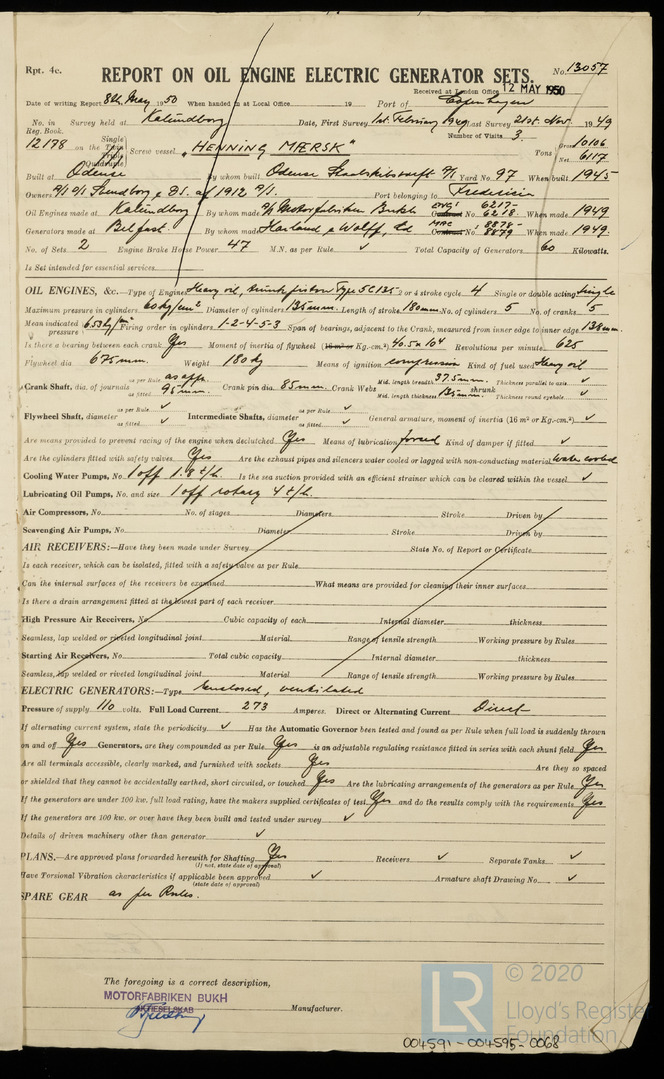 Rpt. 4c.
No. 13057
REPORT ON OIL ENGINE ELECTRIC GENERATOR SETS.
Received at London Office 12 MAY 1950
Date of writing Report 8th May 1950 When handed in at Local Office 19 Port of Copenhagen
No. in Reg. Book. Survey held at Kalundborg Date, First Survey 1st February 1949 Last Survey 21st Nov. 1949
Number of Visits 3.
12178 on the Single Twin Triple Quadruple Screw vessel "HENNING MÆRSK" Tons Gross 10106 Net 6117
Built at Odense By whom built Odense Staalskibsværft A/S Yard No. 97 When built 1945
Owners A/S D/S Svendborg & D/S. af 1912 A/S. Port belonging to Fredericia
Oil Engines made at Kalundborg By whom made A/S Motorfabriken Bukh Contract No. ENG: 6217- 6218 When made 1949
Generators made at Belfast. By whom made Harland & Wolff, Ld Contract No. MAC 8878- 8879 When made 1949.
No. of Sets 2 Engine Brake Horse Power 47 M.N. as per Rule ✓ Total Capacity of Generators 60 Kilowatts.
Is Set intended for essential services
OIL ENGINES, &c.—Type of Engines Heavy oil, trunk piston Type 5C135 2 or 4 stroke cycle 4 Single or double acting Single
Maximum pressure in cylinders 60 kg/cm² Diameter of cylinders 135 mm. Length of stroke 180 mm No. of cylinders 5 No. of cranks 5
Mean indicated pressure 6.53 kg/cm² Firing order in cylinders 1-2-4-5-3 Span of bearings, adjacent to the Crank, measured from inner edge to inner edge 138 mm.
Is there a bearing between each crank Yes Moment of inertia of flywheel (16 m² or Kg.-cm.²) 40.5 x 10⁴ Revolutions per minute 625
Flywheel dia 675 mm. Weight 180 kg Means of ignition compression Kind of fuel used Heavy oil
Crank Shaft, dia. of journals as per Rule as appr. as fitted 95 mm. Crank pin dia. 85 mm. Crank Webs Mid. length breadth 37.5 mm. Mid. length thickness 135 mm. shrunk Thickness parallel to axis ✓ Thickness round eyehole ✓
Flywheel Shaft, diameter as per Rule ✓ as fitted ✓ Intermediate Shafts, diameter as per Rule ✓ as fitted ✓ General armature, moment of inertia (16 m² or Kg.-cm.²) ✓
Are means provided to prevent racing of the engine when declutched Yes Means of lubrication forced Kind of damper if fitted ✓
Are the cylinders fitted with safety valves Yes Are the exhaust pipes and silencers water cooled or lagged with non-conducting material water cooled
Cooling Water Pumps, No. 1 off 1.8 t/h. Is the sea suction provided with an efficient strainer which can be cleared within the vessel ✓
Lubricating Oil Pumps, No. and size 1 off rotary 4 t/h.
Air Compressors, No. No. of stages Diameters Stroke Driven by
Scavenging Air Pumps, No. Diameter Stroke Driven by
AIR RECEIVERS:—Have they been made under Survey State No. of Report or Certificate
Is each receiver, which can be isolated, fitted with a safety valve as per Rule
Can the internal surfaces of the receivers be examined What means are provided for cleaning their inner surfaces
Is there a drain arrangement fitted at the lowest part of each receiver
High Pressure Air Receivers, No. Cubic capacity of each Internal diameter thickness
Seamless, lap welded or riveted longitudinal joint Material Range of tensile strength Working pressure by Rules
Starting Air Receivers, No. Total cubic capacity Internal diameter thickness
Seamless, lap welded or riveted longitudinal joint Material Range of tensile strength Working pressure by Rules
ELECTRIC GENERATORS:—Type Enclosed, ventilated
Pressure of supply 110 volts. Full Load Current 273 Amperes. Direct or Alternating Current Direct
If alternating current system, state the periodicity ✓ Has the Automatic Governor been tested and found as per Rule when full load is suddenly thrown
on and off Yes Generators, are they compounded as per Rule Yes is an adjustable regulating resistance fitted in series with each shunt field Yes
Are all terminals accessible, clearly marked, and furnished with sockets Yes Are they so spaced
or shielded that they cannot be accidentally earthed, short circuited, or touched Yes Are the lubricating arrangements of the generators as per Rule Yes
If the generators are under 100 kw. full load rating, have the makers supplied certificates of test Yes and do the results comply with the requirements Yes
If the generators are 100 kw. or over have they been built and tested under survey ✓
Details of driven machinery other than generator ✓
PLANS.—Are approved plans forwarded herewith for Shafting Yes Receivers ✓ Separate Tanks ✓
(If not, state date of approval)
Have Torsional Vibration characteristics if applicable been approved ✓ Armature shaft Drawing No. ✓
(state date of approval)
SPARE GEAR as per Rules.
The foregoing is a correct description,
MOTORFABRIKEN BUKH
AKTIESELSKAB
Manufacturer.
LR © 2020
Lloyd's Register
Foundation
004591-004595-0068